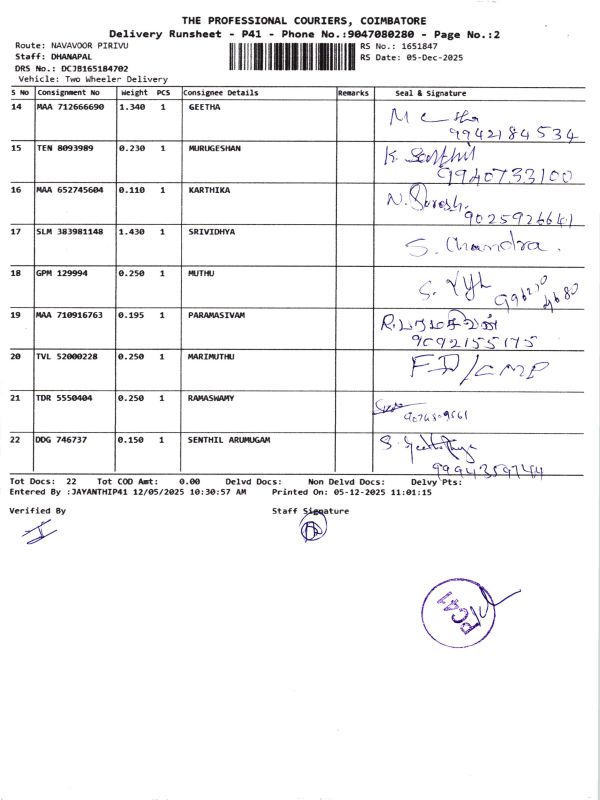 THE PROFESSIONAL COURIERS, COIMBATORE
Delivery Runsheet - P41 - Phone No.:9047080280 - Page No.:2
Route: NAVAVOOR PIRIVU
RS No.: 1651847
Staff: DHANAPAL
RS Date: 05-Dec-2025
DRS No.: DCJB165184702
Vehicle: Two Wheeler Delivery
S No Consignment No Weight PCS Consignee Details Remarks Seal & Signature
14 MAA 712666690 1.340 1 GEETHA
9942184534
15 TEN 8093989 0.230 1 MURUGESHAN K. Senthil
9940733100
16 MAA 652745604 0.110 1 KARTHIKA N. Suresh.
9025926641
17 SLM 383981148 1.430 1 SRIVIDHYA S. Chandra.
18 GPM 129994 0.250 1 MUTHU
19 MAA 710916763 0.195 1 PARAMASIVAM R. பரமசிவன்
9092155175
20 TVL 52000228 0.250 1 MARIMUTHU FD/CMP
21 TDR 5550404 0.250 1 RAMASWAMY
22 DDG 746737 0.150 1 SENTHIL ARUMUGAM
9994359744
Tot Docs: 22 Tot COD Amt: 0.00 Delvd Docs: Non Delvd Docs: Delvy Pts:
Entered By :JAYANTHIP41 12/05/2025 10:30:57 AM Printed On: 05-12-2025 11:01:15
Verified By Staff Signature